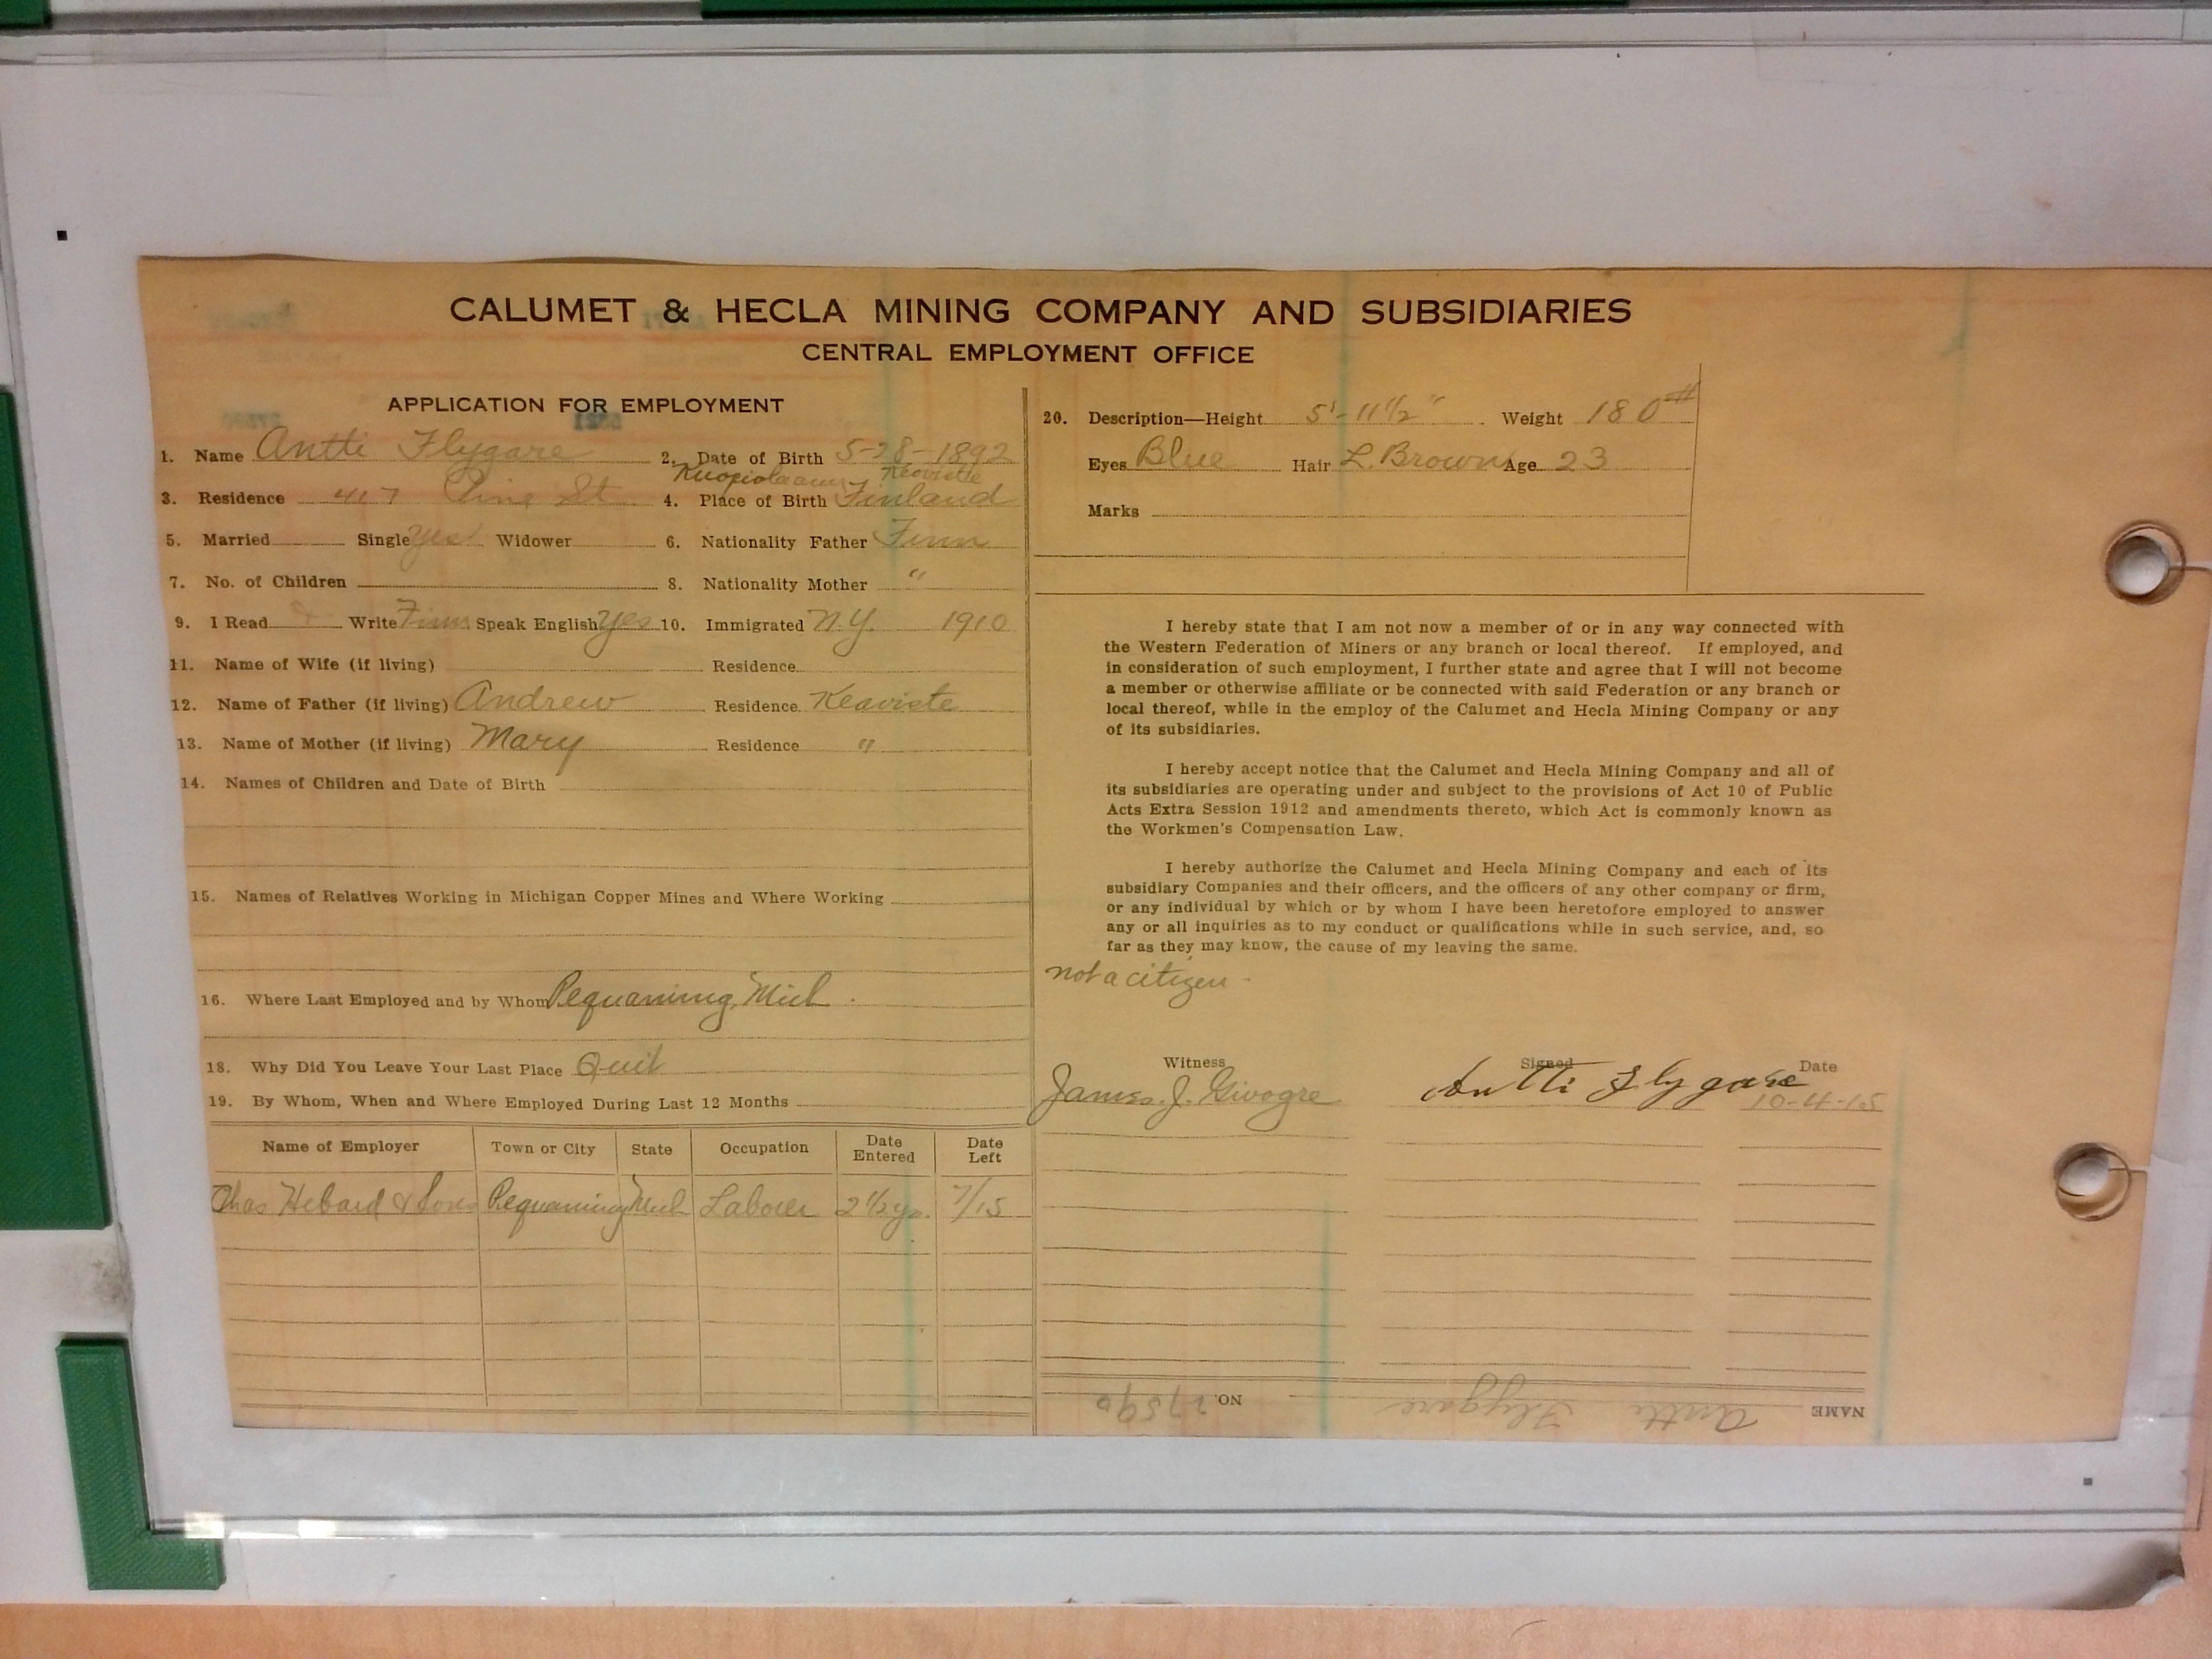 CALUMET & HECLA MINING COMPANY AND SUBSIDIARIES
CENTRAL EMPLOYMENT OFFICE
APPLICATION FOR EMPLOYMENT
1. Name Antti Flygare 2. Date of Birth 5-28-1892
3. Residence 417 Pine St. 4. Place of Birth Finland
5. Married Single yes Widower 6. Nationality Father Finn
7. No. of Children 8. Nationality Mother "
9. I Read & Write Finn Speak English yes 10. Immigrated N.Y. 1910
11. Name of Wife (if living) Residence
12. Name of Father (if living) Andrew Residence Keaviste
13. Name of Mother (if living) Mary Residence "
14. Names of Children and Date of Birth
15. Names of Relatives Working in Michigan Copper Mines and Where Working
16. Where Last Employed and by Whom Pequaming, Mich.
18. Why Did You Leave Your Last Place Quit
19. By Whom, When and Where Employed During Last 12 Months
Name of Employer Town or City State Occupation Date Entered Date Left
Chas Hebard & Sons Pequaming Mich Laborer 2 1/2 yrs. 7/15
20. Description—Height 5'-11 1/2" Weight 180#
Eyes Blue Hair L. Brown Age 23
Marks
I hereby state that I am not now a member of or in any way connected with
the Western Federation of Miners or any branch or local thereof. If employed, and
in consideration of such employment, I further state and agree that I will not become
a member or otherwise affiliate or be connected with said Federation or any branch or
local thereof, while in the employ of the Calumet and Hecla Mining Company or any
of its subsidiaries.
I hereby accept notice that the Calumet and Hecla Mining Company and all of
its subsidiaries are operating under and subject to the provisions of Act 10 of Public
Acts Extra Session 1912 and amendments thereto, which Act is commonly known as
the Workmen's Compensation Law.
I hereby authorize the Calumet and Hecla Mining Company and each of its
subsidiary Companies and their officers, and the officers of any other company or firm,
or any individual by which or by whom I have been heretofore employed to answer
any or all inquiries as to my conduct or qualifications while in such service, and, so
far as they may know, the cause of my leaving the same.
not a citizen -
Witness Signed Date
James. J. Givogre Antti Flygare 10-4-15
NAME Antti Flygare NO. 27590